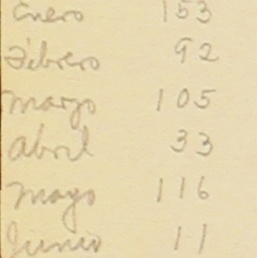 Enero 153
Febrero 92
Marzo 105
Abril 33
Mayo 116
Junio 11